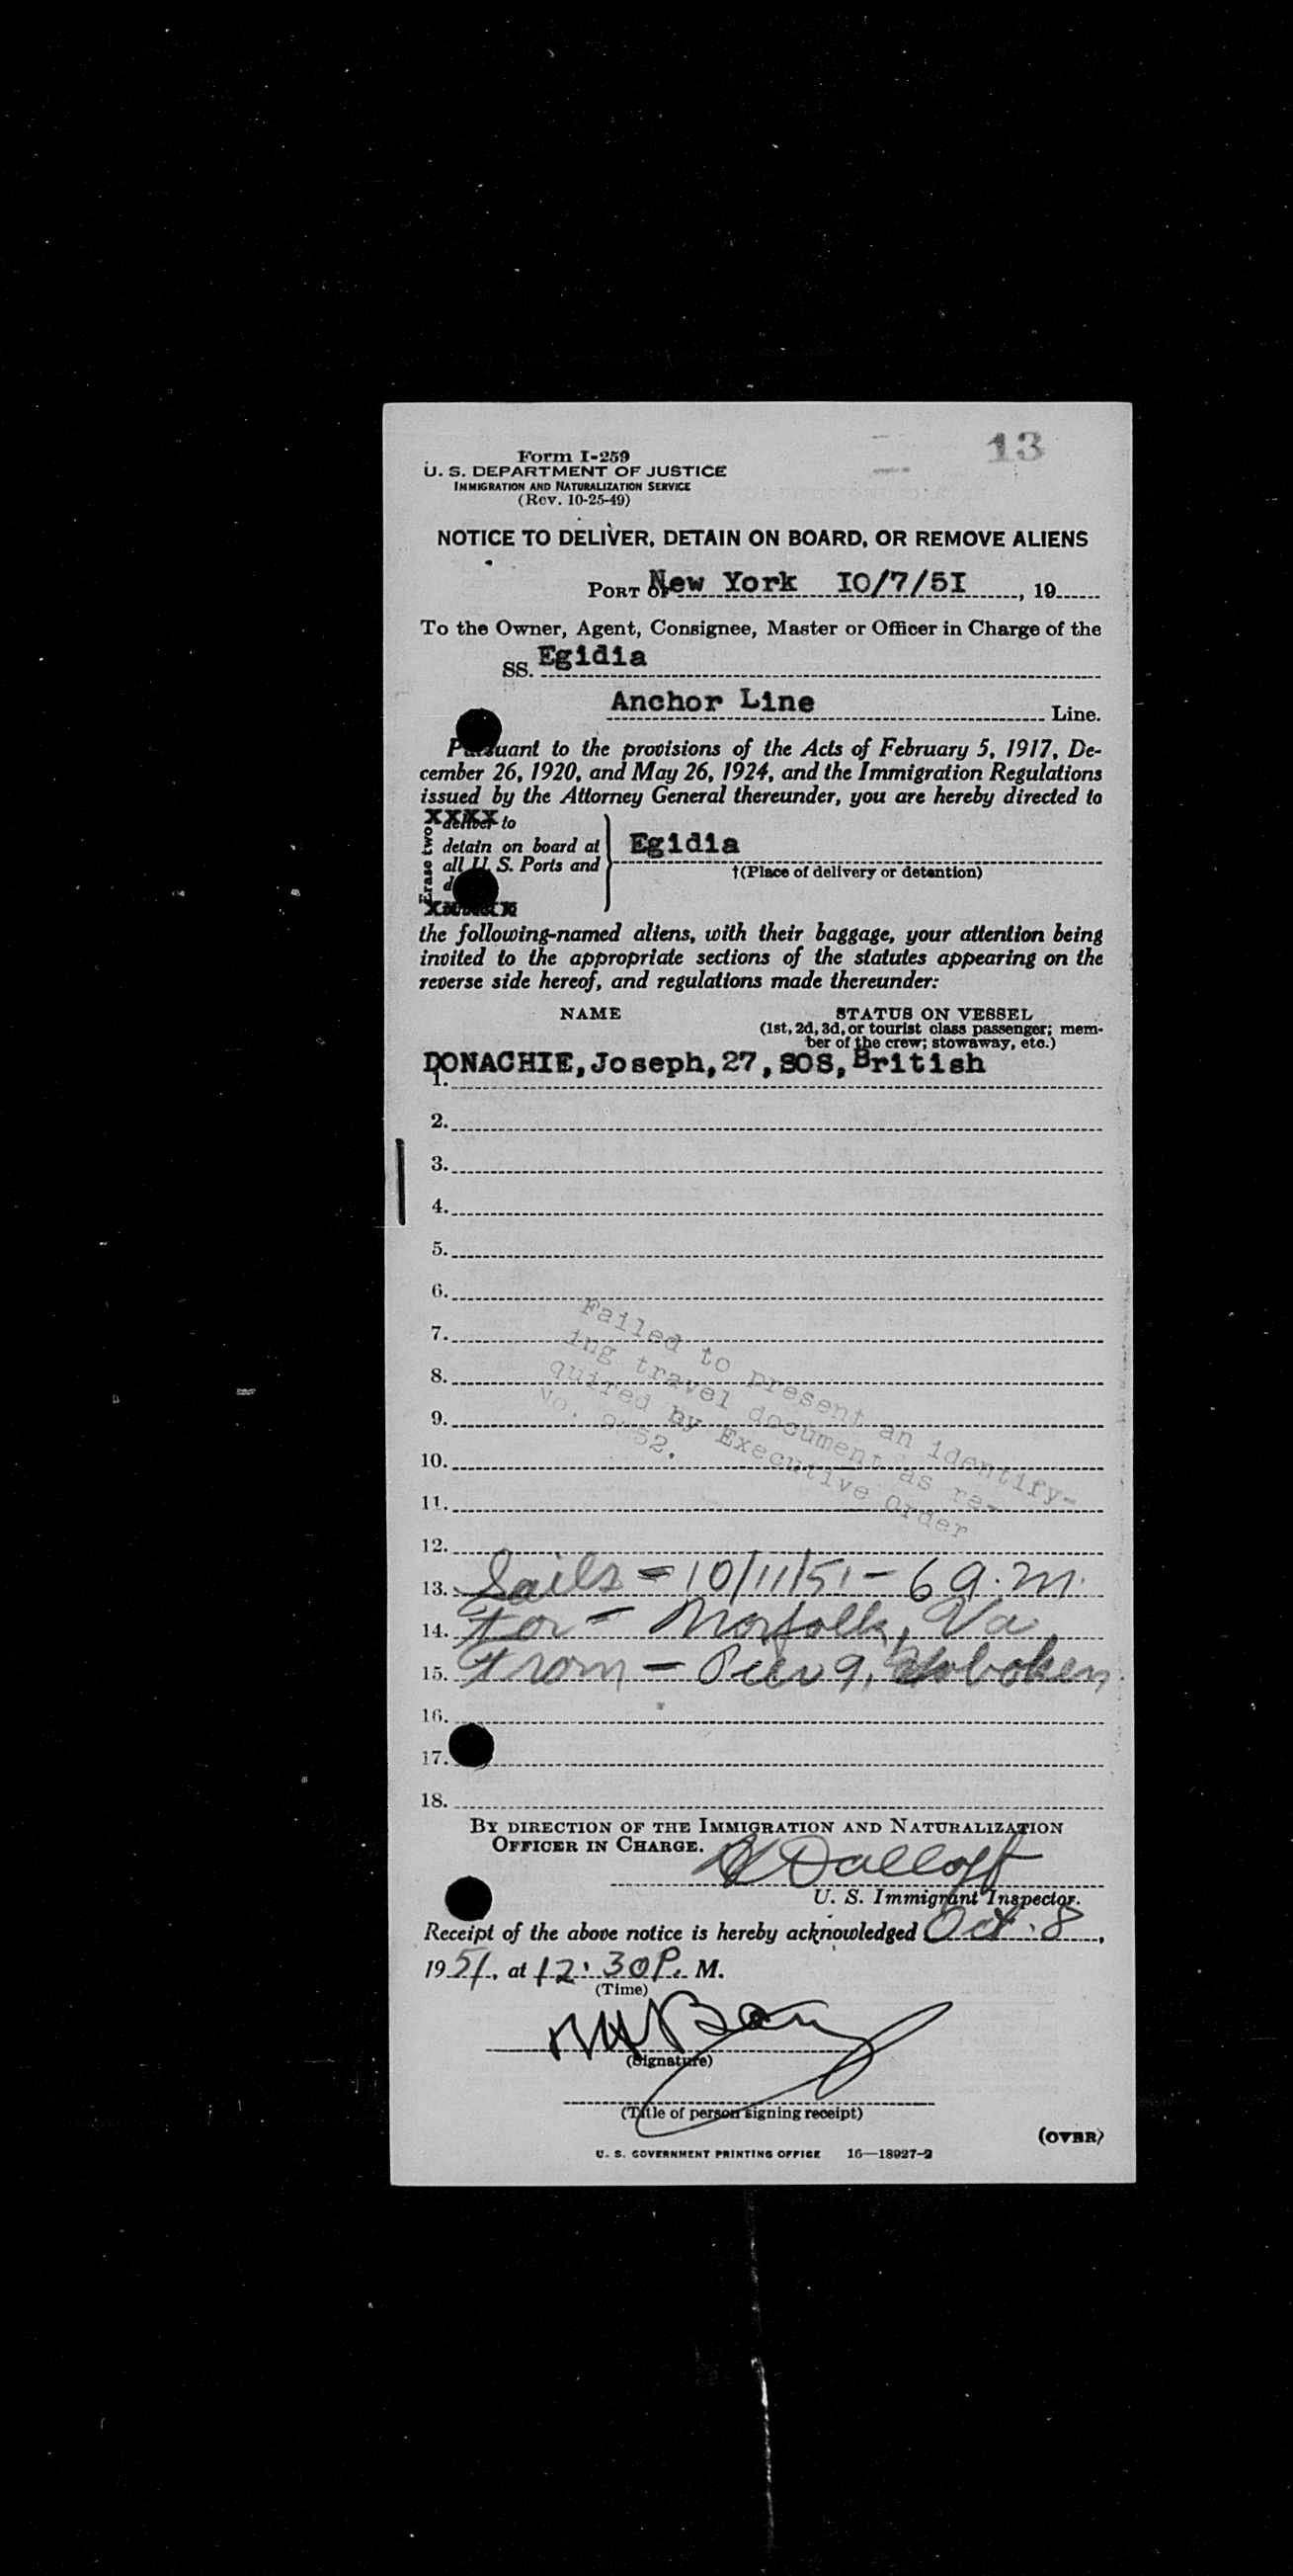 13
Form I-259
U. S. DEPARTMENT OF JUSTICE
IMMIGRATION AND NATURALIZATION SERVICE
(Rev. 10-25-49)
NOTICE TO DELIVER, DETAIN ON BOARD, OR REMOVE ALIENS
PORT OF New York IO/7/5I, 19
To the Owner, Agent, Consignee, Master or Officer in Charge of the
SS. Egidia
Anchor Line Line.
Pursuant to the provisions of the Acts of February 5, 1917, De-
cember 26, 1920, and May 26, 1924, and the Immigration Regulations
issued by the Attorney General thereunder, you are hereby directed to
Erase two
XXXX to
detain on board at
all U. S. Ports and
Egidia
†(Place of delivery or detention)
the following-named aliens, with their baggage, your attention being
invited to the appropriate sections of the statutes appearing on the
reverse side hereof, and regulations made thereunder:
NAME STATUS ON VESSEL
(1st, 2d, 3d, or tourist class passenger; mem-
ber of the crew; stowaway, etc.)
1. DONACHIE, Joseph, 27, SOS, British
2.
3.
4.
5.
6.
7.
8.
9.
10.
11.
12.
Failed to present an identify-
ing travel document as re-
quired by Executive Order
No.
13. Sails = 10/11/51 - 6 a.m.
14. For - Norfolk, Va
15. From - Pier 9, Hoboken
16.
17.
18.
BY DIRECTION OF THE IMMIGRATION AND NATURALIZATION
OFFICER IN CHARGE.
Dalloff
U. S. Immigrant Inspector.
Receipt of the above notice is hereby acknowledged Oct. 8,
1951, at 12:30 P. M.
(Time)
(Signature)
(Title of person signing receipt)
(OVER)
U. S. GOVERNMENT PRINTING OFFICE 16—18927-2